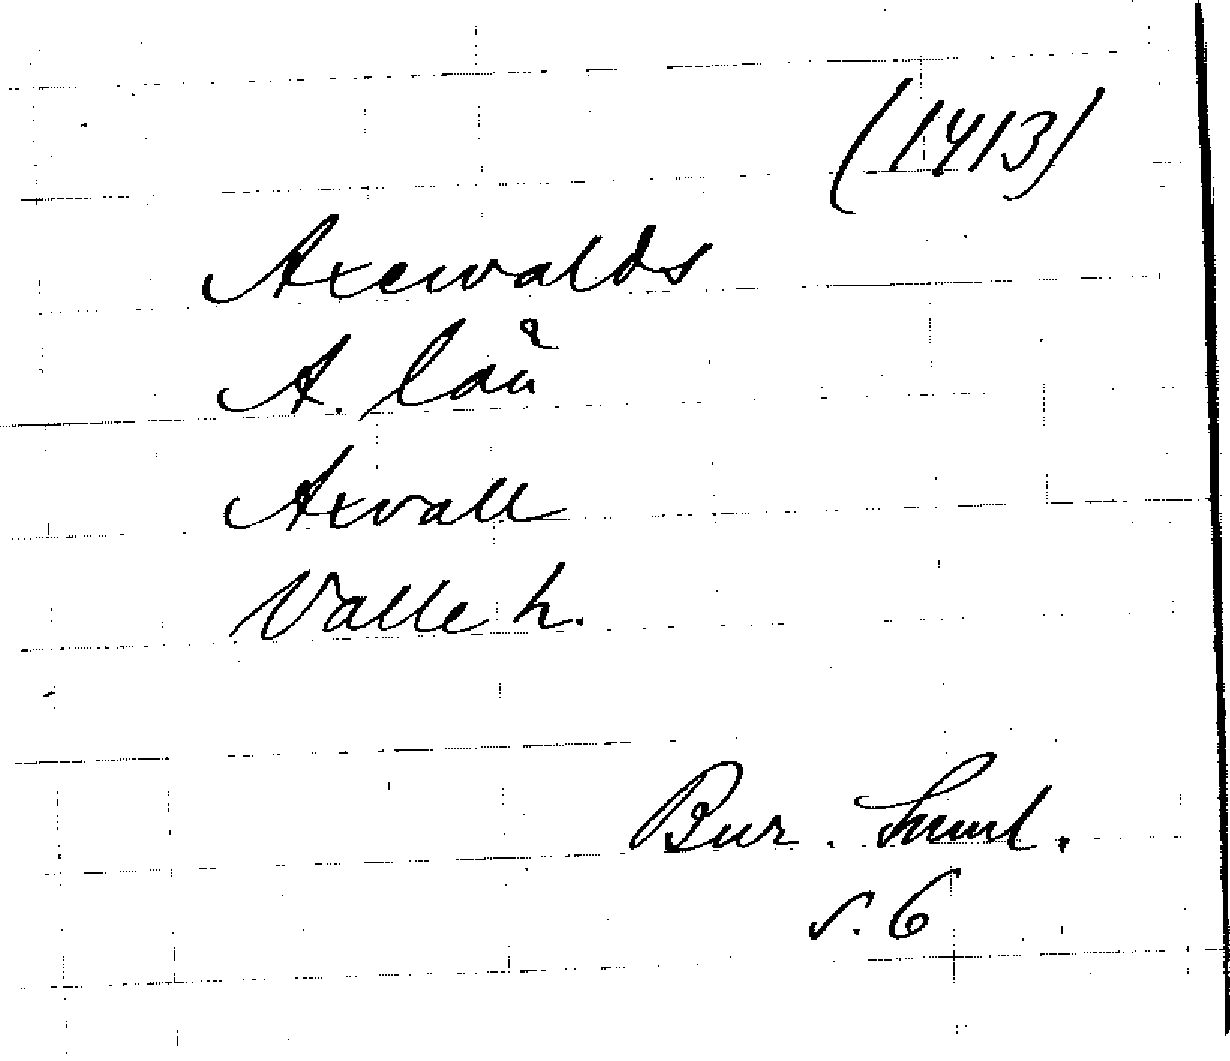 (1413)
Axewalds
A. län
Axvall
Valle h.
Bur. Saml.
s. 6